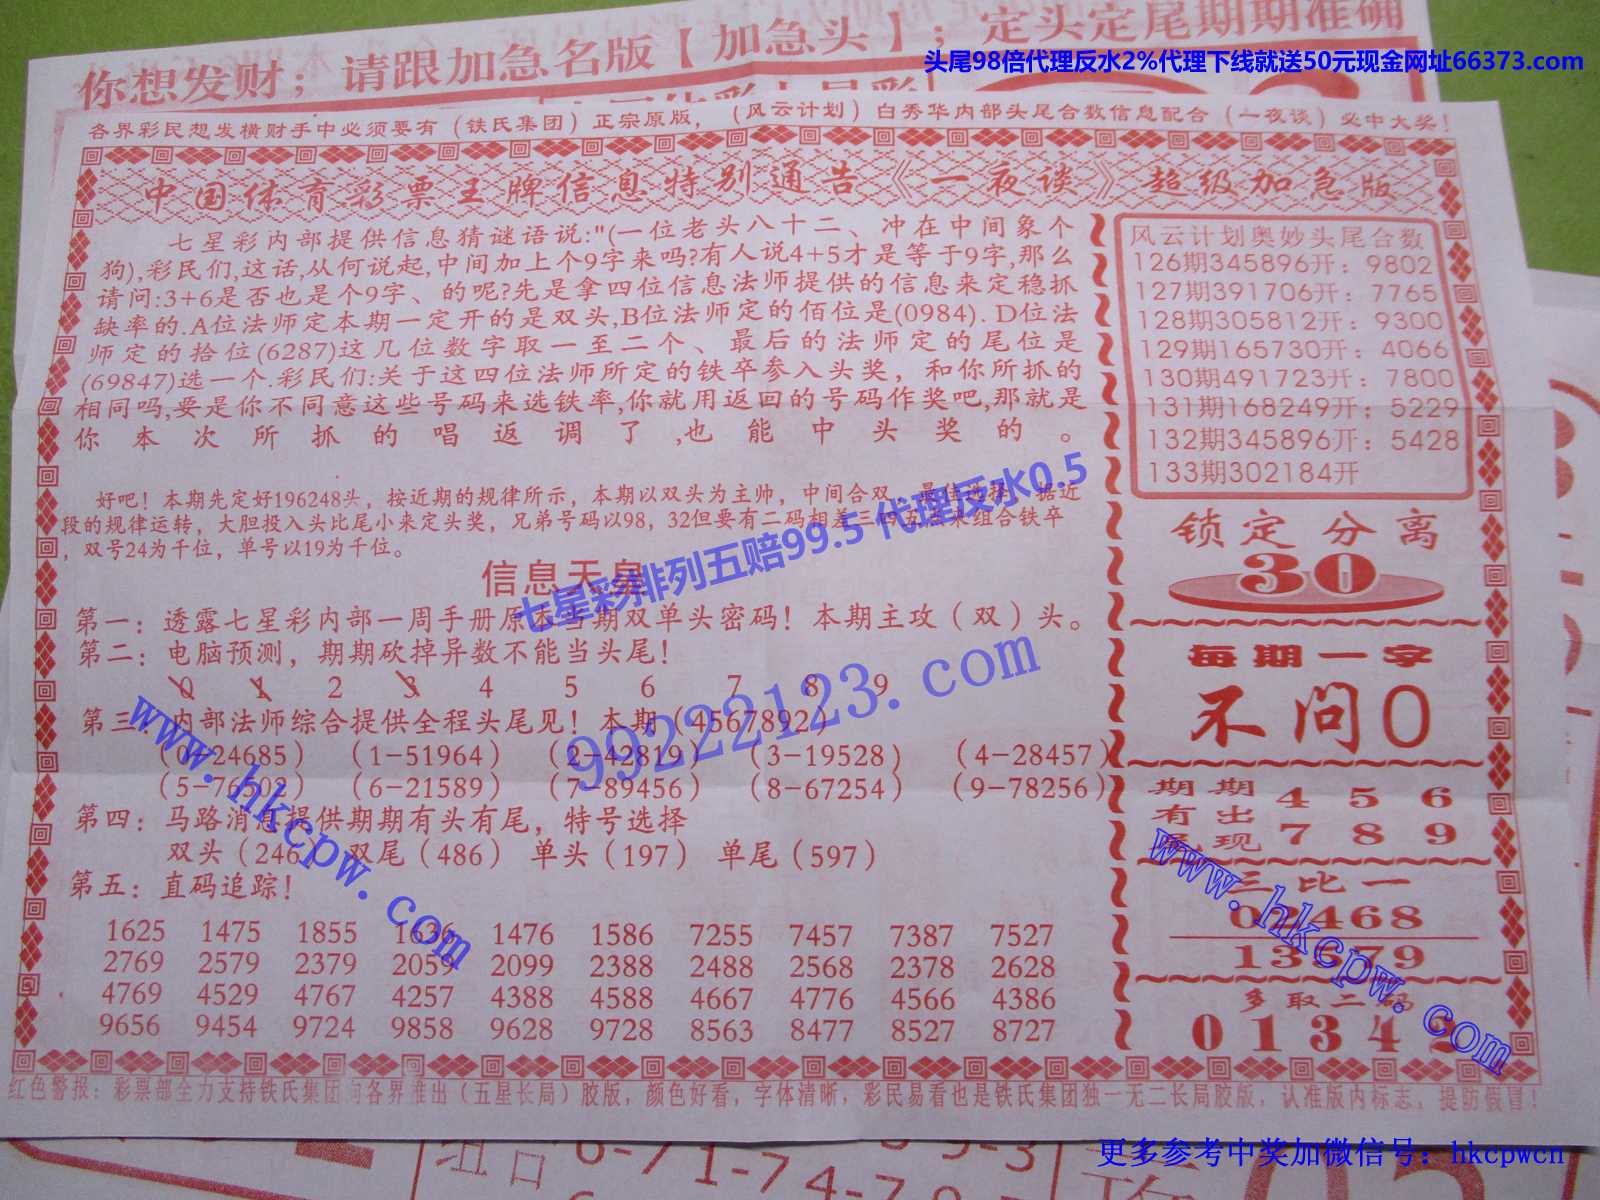 你想发财；请跟加急名版【加急头】；定头定尾期期准确
头尾98倍代理反水2%代理下线就送50元现金网址66373.com
各界彩民想发横财手中必须要有（铁氏集团）正宗原版，（风云计划）白秀华内部头尾合数信息配合（一夜谈）必中大奖！
中国体育彩票王牌信息特别通告《一夜谈》超级加急版
七星彩内部提供信息猜谜语说:"(一位老头八十二、冲在中间象个
狗),彩民们,这话,从何说起,中间加上个9字来吗?有人说4+5才是等于9字,那么
请问:3+6是否也是个9字、的呢?先是拿四位信息法师提供的信息来定稳抓
缺率的.A位法师定本期一定开的是双头,B位法师定的佰位是(0984).D位法
师定的拾位(6287)这几位数字取一至二个、最后的法师定的尾位是
(69847)选一个.彩民们:关于这四位法师所定的铁卒参入头奖，和你所抓的
相同吗,要是你不同意这些号码来选铁率,你就用返回的号码作奖吧,那就是
你本次所抓的唱返调了,也能中头奖的。
好吧！本期先定好196248头，按近期的规律所示，本期以双头为主帅，中间合双，最佳选择，据近
段的规律运转，大胆投入头比尾小来定头奖，兄弟号码以98，32但要有二码相差三四五来组合铁卒
，双号24为千位，单号以19为千位。
信息天皇
七星彩排列五赔99.5 代理反水0.5
第一：透露七星彩内部一周手册原本当期双单头密码！本期主攻（双）头。
第二：电脑预测，期期砍掉异数不能当头尾！
0 1 2 3 4 5 6 7 8 9
第三：内部法师综合提供全程头尾见！本期（4567892）
（0-24685）（1-51964）（2-42819）（3-19528）（4-28457）
（5-76502）（6-21589）（7-89456）（8-67254）（9-78256）
99222123.com
第四：马路消息提供期期有头有尾，特号选择
双头（246）双尾（486）单头（197）单尾（597）
第五：直码追踪！
1625 1475 1855 1636 1476 1586 7255 7457 7387 7527
2769 2579 2379 2059 2099 2388 2488 2568 2378 2628
4769 4529 4767 4257 4388 4588 4667 4776 4566 4386
9656 9454 9724 9858 9628 9728 8563 8477 8527 8727
www.hkcpw.com
风云计划奥妙头尾合数
126期345896开：9802
127期391706开：7765
128期305812开：9300
129期165730开：4066
130期491723开：7800
131期168249开：5229
132期345896开：5428
133期302184开
锁定分离
30
每期一字
不问0
期期 4 5 6
有出
现 7 8 9
三比一
02468
13579
多取二码
0 1 3 4 2
www.hkcpw.com
红色警报：彩票部全力支持铁氏集团向各界推出（五星长局）胶版，颜色好看，字体清晰，彩民易看也是铁氏集团独一无二长局胶版，认准版内标志，提防假冒！
更多参考中奖加微信号：hkcpwcn